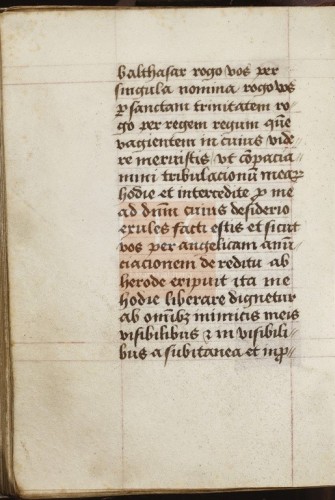 balthasar rogo vos per
singula nomina rogo vos
ꝑ sanctam trinitatem ro
go per regem regum quē
vagientem in cunis vide
re meruistis vt cōpacia
mini tribulacionū mearꝝ
hodie et intercedite ꝓ me
ad dn̄m cuius desiderio
exules facti estis et sicut
vos per angelicam anū
ciacionem de reditu ab
herode eripuit ita me
hodie liberare dignetur
ab om̄ibꝫ inimicis meis
visibilibus ⁊ in visibili
bus a subitanea et inꝓ